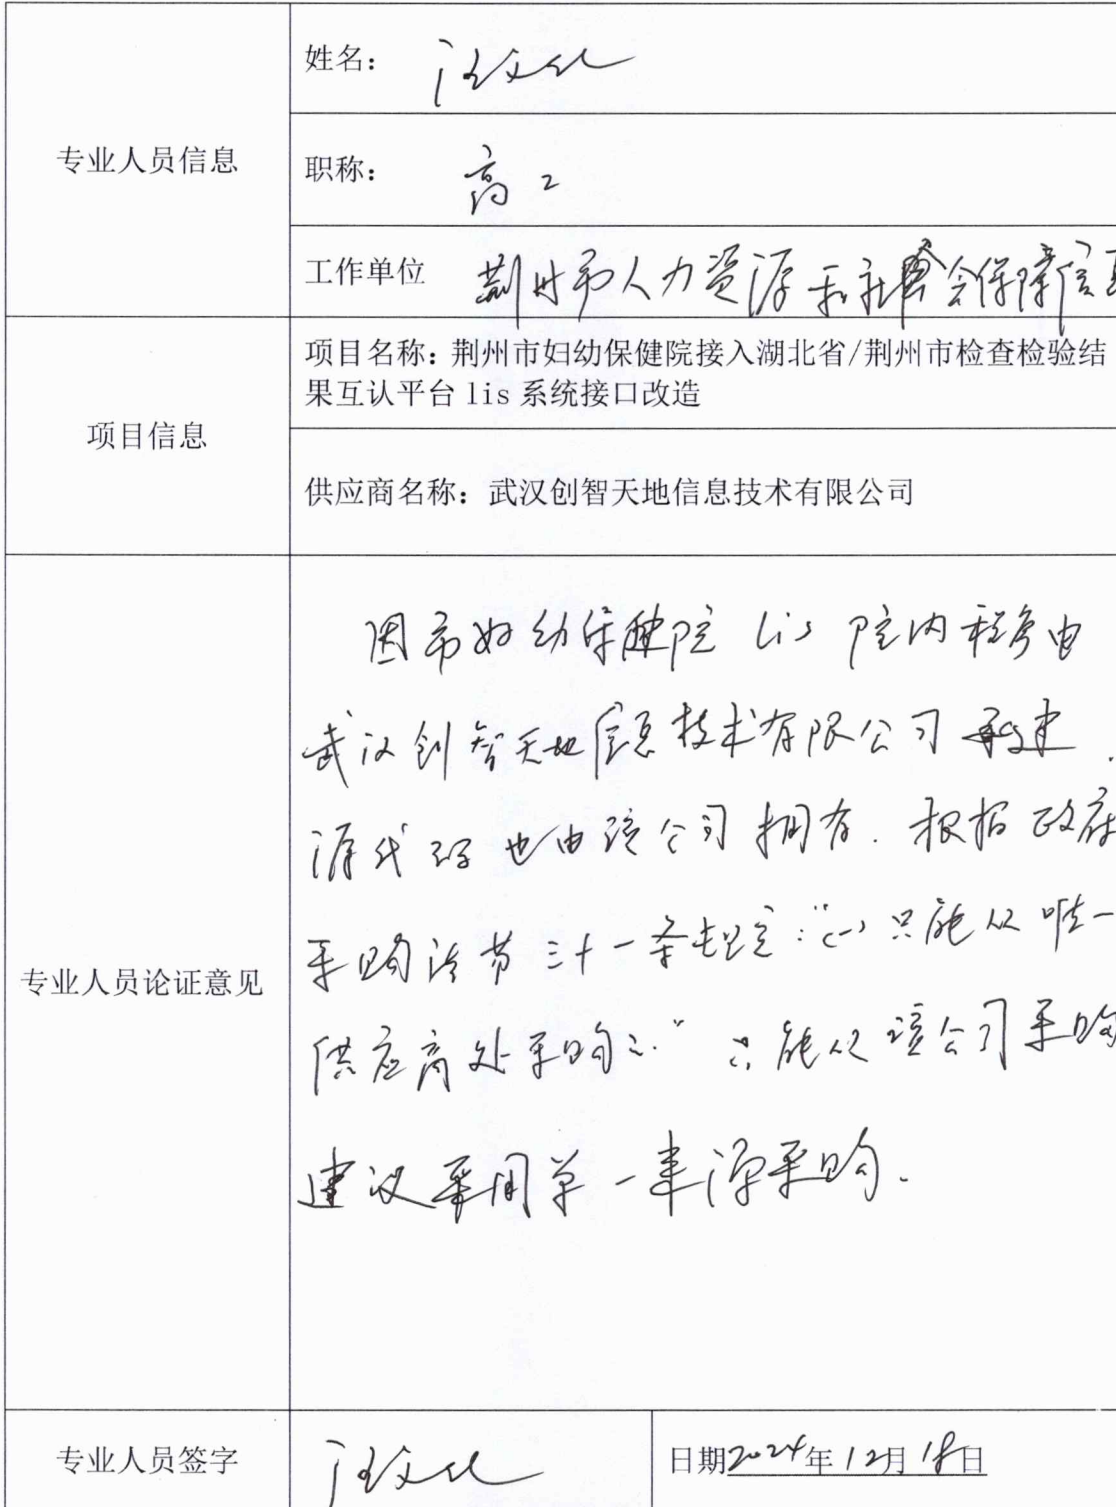 专业人员信息
姓名: 汪文化
职称: 高工
工作单位 荆州市人力资源和社会保障信息
项目信息
项目名称: 荆州市妇幼保健院接入湖北省/荆州市检查检验结
果互认平台 lis 系统接口改造
供应商名称: 武汉创智天地信息技术有限公司
专业人员论证意见
因市妇幼保健院 lis 院内程序由
武汉创智天地信息技术有限公司承建.
源代码也由该公司拥有. 根据政府
采购法第三十一条规定:“(一) 只能从唯一
供应商处采购的” 只能从该公司采购
建议采用单一来源采购.
专业人员签字
汪文化
日期2024年12月18日